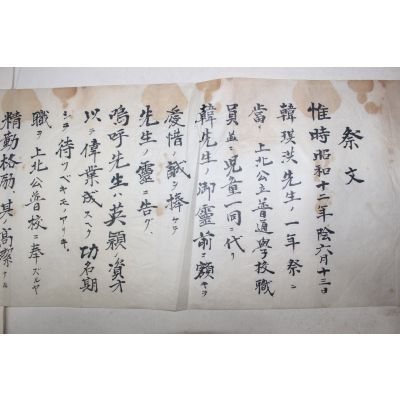 祭文
惟時昭和十二年陰六月十三日
韓璞洪先生ノ一年祭ニ
當リ上北公立普通學校職
員並ニ児童一同ニ代リ
韓先生ノ御靈前ニ額キヲ
愛惜ノ誠ヲ捧ゲ
先生ノ靈ニ告グ
嗚呼先生ハ英穎ノ資才
以テ偉業成スベク功名期
シテ待ツベキモノアリキ
職ヲ上北公普校ニ奉ズルヤ
精勤格励其